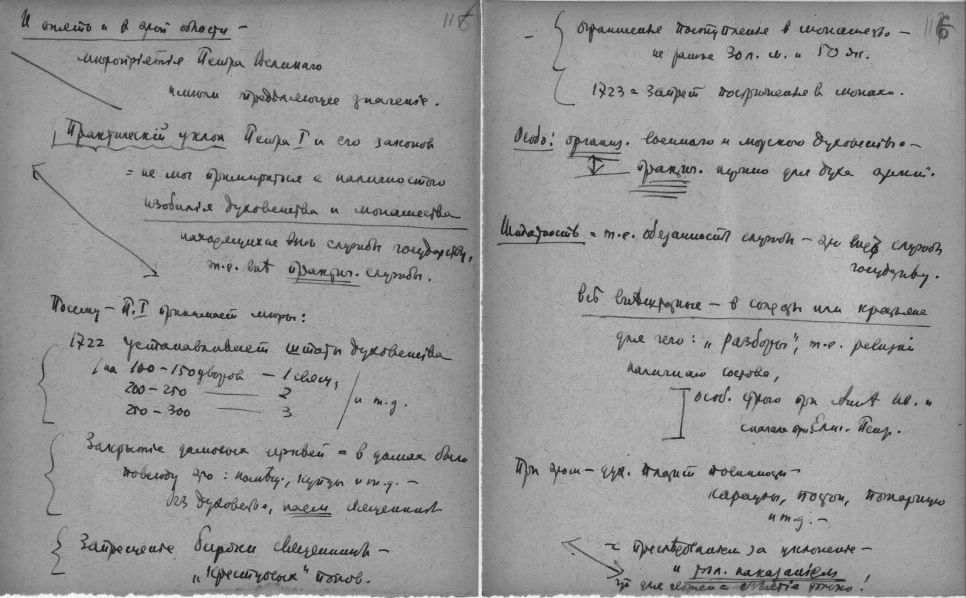 И опять и в этой области –
116
мѣропрiятiя Петра Великаго
имѣли значенiе.
Практическiй уклон Петра I и его законов
= не мог примириться с наличностью
изобилiя духовенства и монашества
находящихся внѣ службы государству,
т.е. внѣ практич. службы.
Посему – П. I принимает мѣры:
1722 устанавливает штаты духовенства
на 100–150 дворов — 1 свящ.
200–250 — 2
250–300 — 3
и т.д.
Закрытiе домовых церквей = в домах было
повсюду это: купцы и т.д. –
без духовенства, наем священников
Запрещенiе священников –
„крестцовых" попов.
– ограниченье поступленья в монашество –
116
не ранѣе 30 л. м. и 50 ж.
1723 = Запрет постриженья в монахи.
Особо: организ. военнаго и морского духовенства –
практич. нужно для духа армiи.
Штатность = т.е. обязанность службы – это видъ службы
государству.
всѣ внѣштатные – в солдаты или крестьяне
для чего: „разборы", т.е. ревизiи
наличнаго состава,
особ. строго при Аннѣ Ив. и
сначала при Елис. Петр.
При этом – дух. платит повинности –
караулы, пожарную
и т.д. –
– с преслѣдованiем за уклоненье –
и тѣл. наказанiем